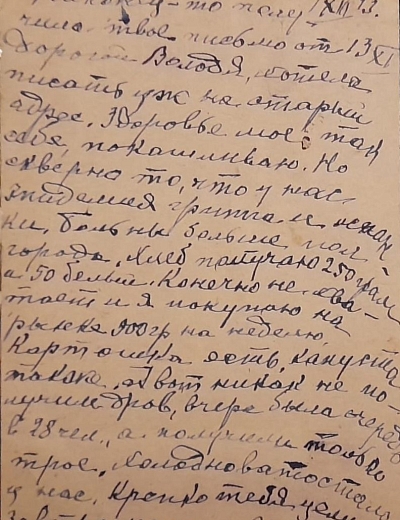 Наконец-то полу 1 XII 43.
чила твое письмо от 13 XI
Дорогой Володя, хотела
писать уж на старый
адрес. Здоровье мое так
себе, покашливаю. Но
скверно то, что у нас
эпидемия гриппа и
ки, больны больше пол
города. Хлеб получаю 250 грам
а 50 белый. Конечно не хва-
тает и я покупаю на
рынке 900 гр на неделю.
Картошка есть, капуста
также. А вот никак не по-
лучим дров, вчера была очередь
в 28 чел., а получили только
трое. Холодновато стало
у нас. Крепко тебя целую